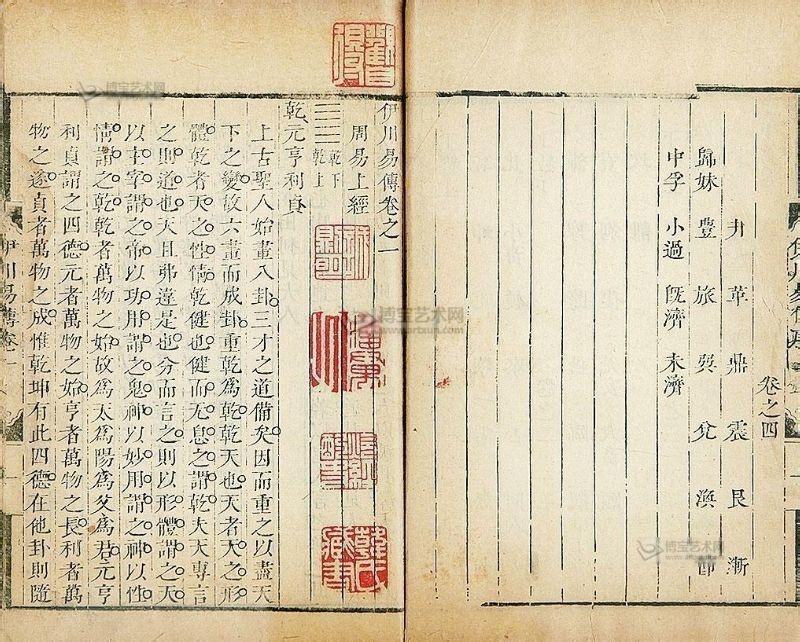 卷之四
井 革 鼎 震 艮 漸
歸妹 豐 旅 巽 兌 渙 節
中孚 小過 旣濟 未濟
伊川易傳卷之一
周易上經
乾下
乾上
乾元亨利貞
上古聖人始畫八卦三才之道備矣因而重之以盡天
下之變故六畫而成卦重乾爲乾乾天也天者天之形
體乾者天之性情乾健也健而无息之謂乾夫天專言
之則道也天且弗違是也分而言之則以形體謂之天
以主宰謂之帝以功用謂之鬼神以妙用謂之神以性
情謂之乾乾者萬物之始故爲天爲陽爲父爲君元亨
利貞謂之四德元者萬物之始亨者萬物之長利者萬
物之遂貞者萬物之成惟乾坤有此四德在他卦則隨
伊川易傳卷一
韓氏藏書
博宝艺术网
博宝艺术网
www.artxun.com
博宝艺术网